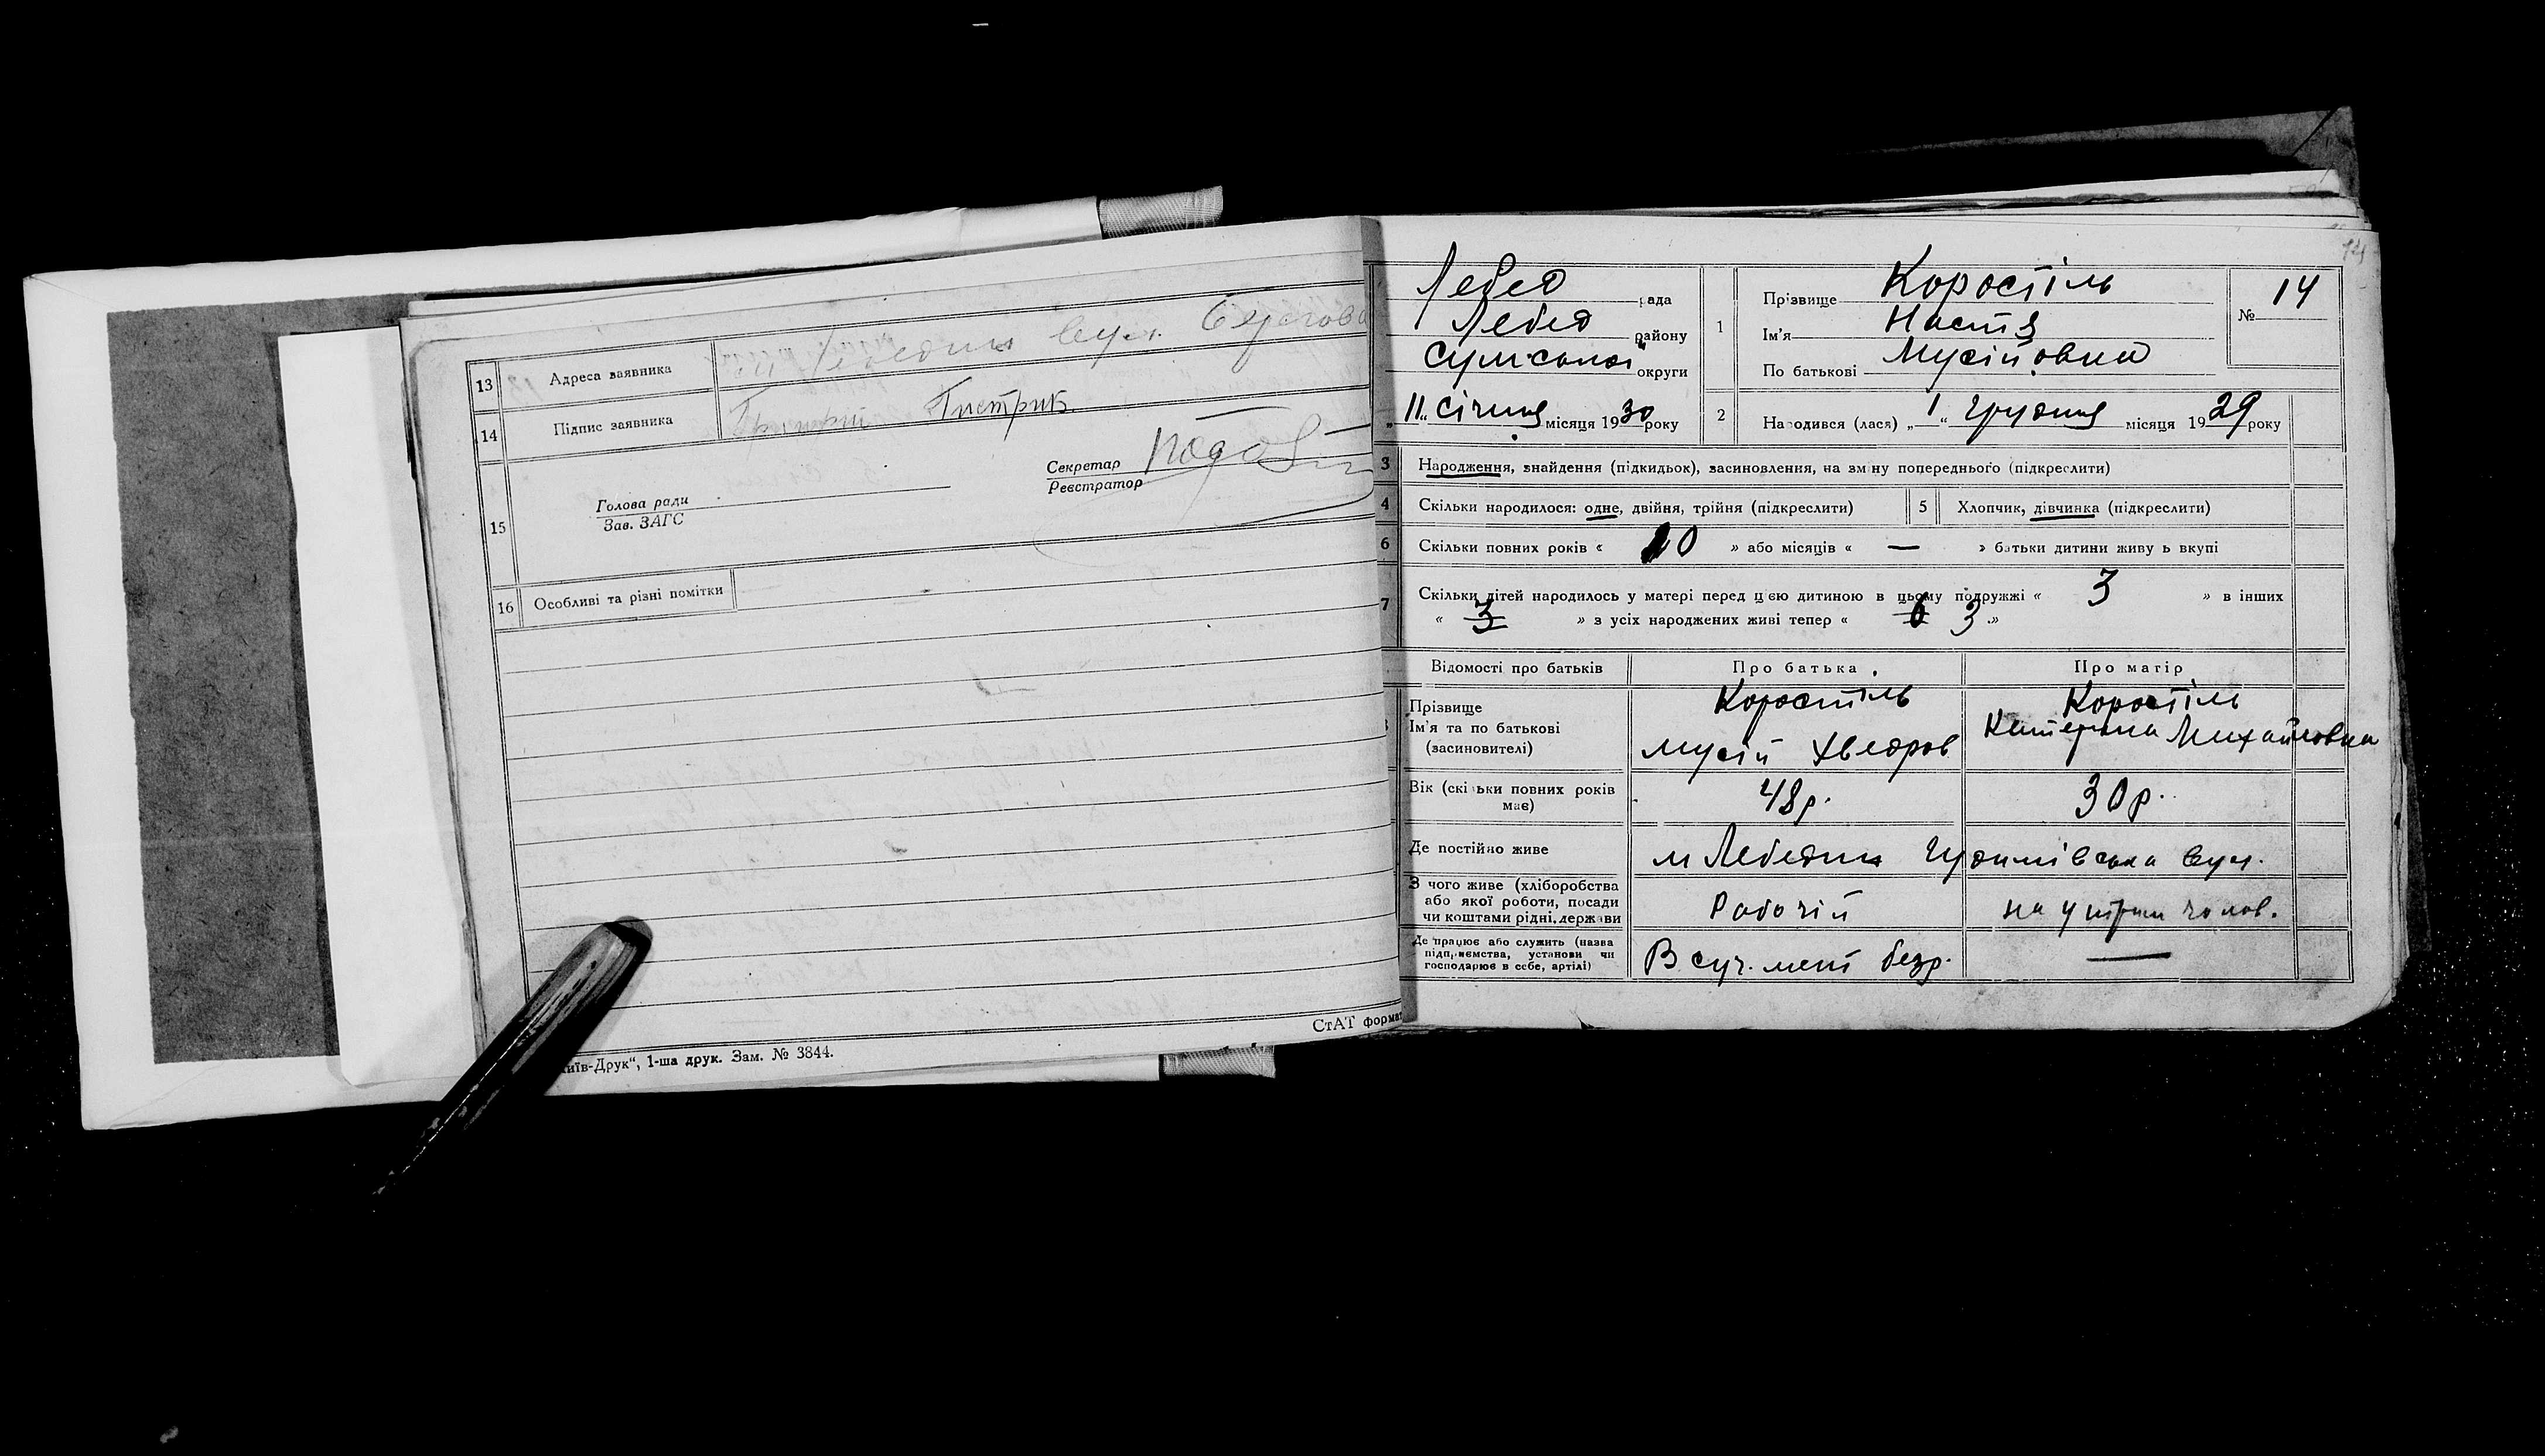 13 Адреса заявника Лебедин вул.
14 Підпис заявника Пистрик
15 Голова ради
Зав. ЗАГС
Секретар
Реєстратор
16 Особливі та різні помітки
СтАТ формат
иїв-Друк“, 1-ша друк. Зам. № 3844.
14
Лебед рада
Лебед району
Сумської округи
„11“ січня місяця 1930 року
1 Прізвище Коростіль
Ім'я Настя
По батькові Мусійовна
№ 14
2 Народився (лася) „1“ грудня місяця 1929 року
3 Народження, знайдення (підкидьок), засиновлення, на зміну попереднього (підкреслити)
4 Скільки народилося: одне, двійня, трійня (підкреслити) 5 Хлопчик, дівчинка (підкреслити)
6 Скільки повних років « 10 » або місяців « — » батьки дитини живу ь вкупі
7 Скільки дітей народилось у матері перед цією дитиною в цьому подружжі « 3 » в інших
« 3 » з усіх народжених живі тепер « 6 3 »
Відомості про батьків Про батька Про матір
Прізвище Коростіль Коростіль
Ім'я та по батькові
(засиновителі) Мусій Хведоров Катерина Михайловна
Вік (скі ьки повних років має) 48 р. 30 р.
Де постійно живе м Лебедин вул.
З чого живе (хліборобства
або якої роботи, посади
чи коштами рідні, держави Робочій на утрим чолов.
Де працює або служить (назва
підприємства, установи чи
господарює в себе, артілі) В суч. мент безр. —